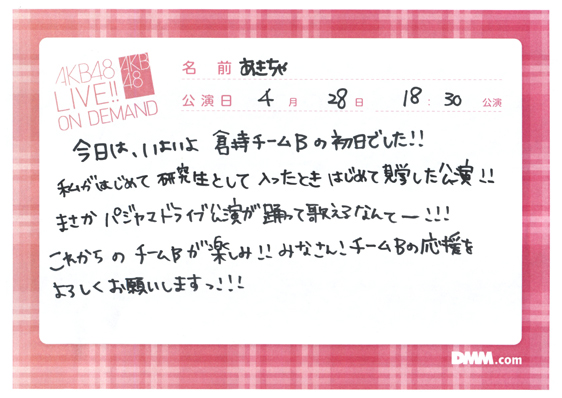 AKB48
LIVE!!
ON DEMAND
AKB
48
名 前 あきちゃ
公演日 4 月 28 日 18 : 30 公演
今日は、いよいよ 倉持チームBの初日でした!!
私がはじめて 研究生として 入ったとき はじめて 見学した公演!!
まさか パジャマドライブ公演が 踊って歌えるなんてー!!!
これからの チームBが 楽しみ!! みなさん! チームBの応援を
よろしく お願いしますっ!!!
DMM.com